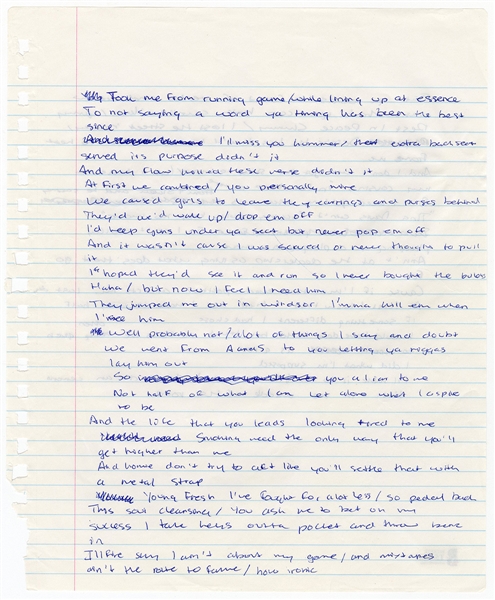 Took me from running game/while lining up at essence
To not saying a word ya timing has been the best
since
I'll miss you hummer/ that extra backseat
served its purpose didn't it
And my flow killed these verse didn't it
At First we combined/ you personally mine
We caused girls to leave they earrings and purses behind
They'd we'd wake up/ drop em off
I'd keep guns under ya seat but never pop em off
And it wasn't cause I was scared or never thought to pull
it
I hoped they'd see it and run so I never bought the bullets
Haha/ but now I feel I need him
They jumped me out in windsor I'mma kill em when
I see him
Well probably not/alot of things I say and doubt
We went from to you letting ya niggas
lay him out
So you a lion to me
Not half of what I am let alone what I aspire
to be
And the life that you leads looking tired to me
Smoking weed the only way that you'll
get higher than me
And homie don't try to act like you'll settle that with
a metal strap
Young Fresh I've fought for alot less/ so pedal back
This soul cleansing/ You ask me to bet on my
success I take keys outta pocket and throw benz
in
I'll Fire say I ain't about my game/and mixtapes
ain't the route to Fame/ how ironic